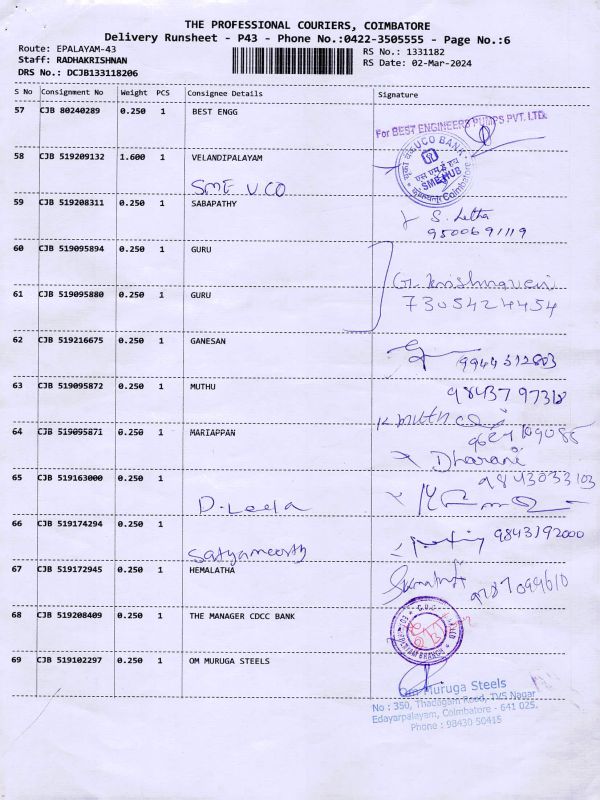 THE PROFESSIONAL COURIERS, COIMBATORE
Delivery Runsheet - P43 - Phone No.:0422-3505555 - Page No.:6
Route: EPALAYAM-43
Staff: RADHAKRISHNAN
DRS No.: DCJB133118206
RS No.: 1331182
RS Date: 02-Mar-2024
S No Consignment No Weight PCS Consignee Details Signature
57 CJB 80240289 0.250 1 BEST ENGG
For BEST ENGINEERS PUMPS PVT. LTD.
58 CJB 519209132 1.600 1 VELANDIPALAYAM
SME UCO
UCO BANK
एस एम ई हब
SME HUB
Coimbatore
59 CJB 519208311 0.250 1 SABAPATHY
S. Letha
9500691119
60 CJB 519095894 0.250 1 GURU
61 CJB 519095880 0.250 1 GURU
7305424454
62 CJB 519216675 0.250 1 GANESAN
9944312603
63 CJB 519095872 0.250 1 MUTHU
98437 97318
64 CJB 519095871 0.250 1 MARIAPPAN
Dharani
65 CJB 519163000 0.250 1
D. Leela
9843033103
66 CJB 519174294 0.250 1
Satyamoorthy
9843192000
67 CJB 519172945 0.250 1 HEMALATHA
9787099610
68 CJB 519208409 0.250 1 THE MANAGER CDCC BANK
69 CJB 519102297 0.250 1 OM MURUGA STEELS
Om Muruga Steels
No : 350, Thadagam Road, TVS Nagar
Edayarpalayam, Coimbatore - 641 025.
Phone : 98430 50415